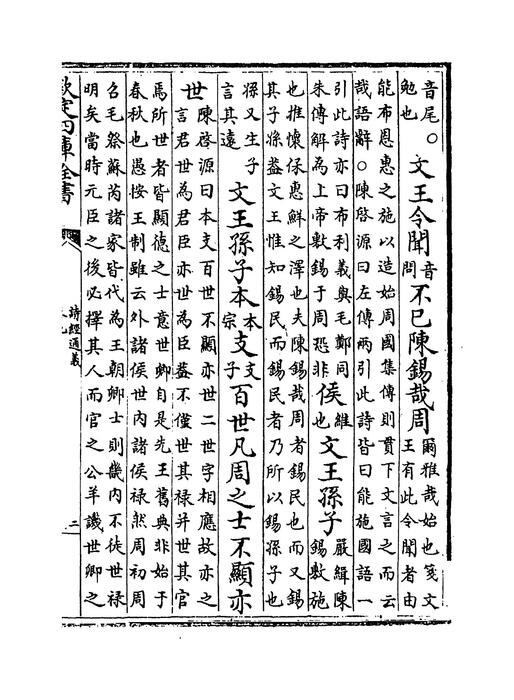 音尾。勉也文王令聞音問不已陳錫哉周爾雅哉始也箋文王有此令聞者由
能布恩惠之施以造始周國集傳則貫下文言之而云
哉語辭○陳啓源曰左傳兩引此詩皆曰能施國語一
引此詩亦曰布利義與毛鄭同朱傳解為上帝敷錫于周恐非侯維也文王孫子嚴緝陳錫敷施
也推懷保惠鮮之澤也夫陳錫哉周者錫民也而又錫
其子孫葢文王惟知錫民而錫民者乃所以錫孫子也
孫又生子言其遠文王孫子本本宗支支子百世凡周之士不顯亦
世陳啓源曰本支百世不顯亦世二世字相應故亦之
言君世為君臣亦世為臣葢不僅世其禄并世其官
焉所世者皆顯德之士意世卿自是先王舊典非始于
春秋也愚按王制雖云外諸侯世内諸侯禄然周初周
召毛祭蘇芮諸家皆代為王朝卿士則畿内不徒世禄
明矣當時元臣之後必擇其人而官之公羊譏世卿之
欽定四庫全書
詩經通義
二